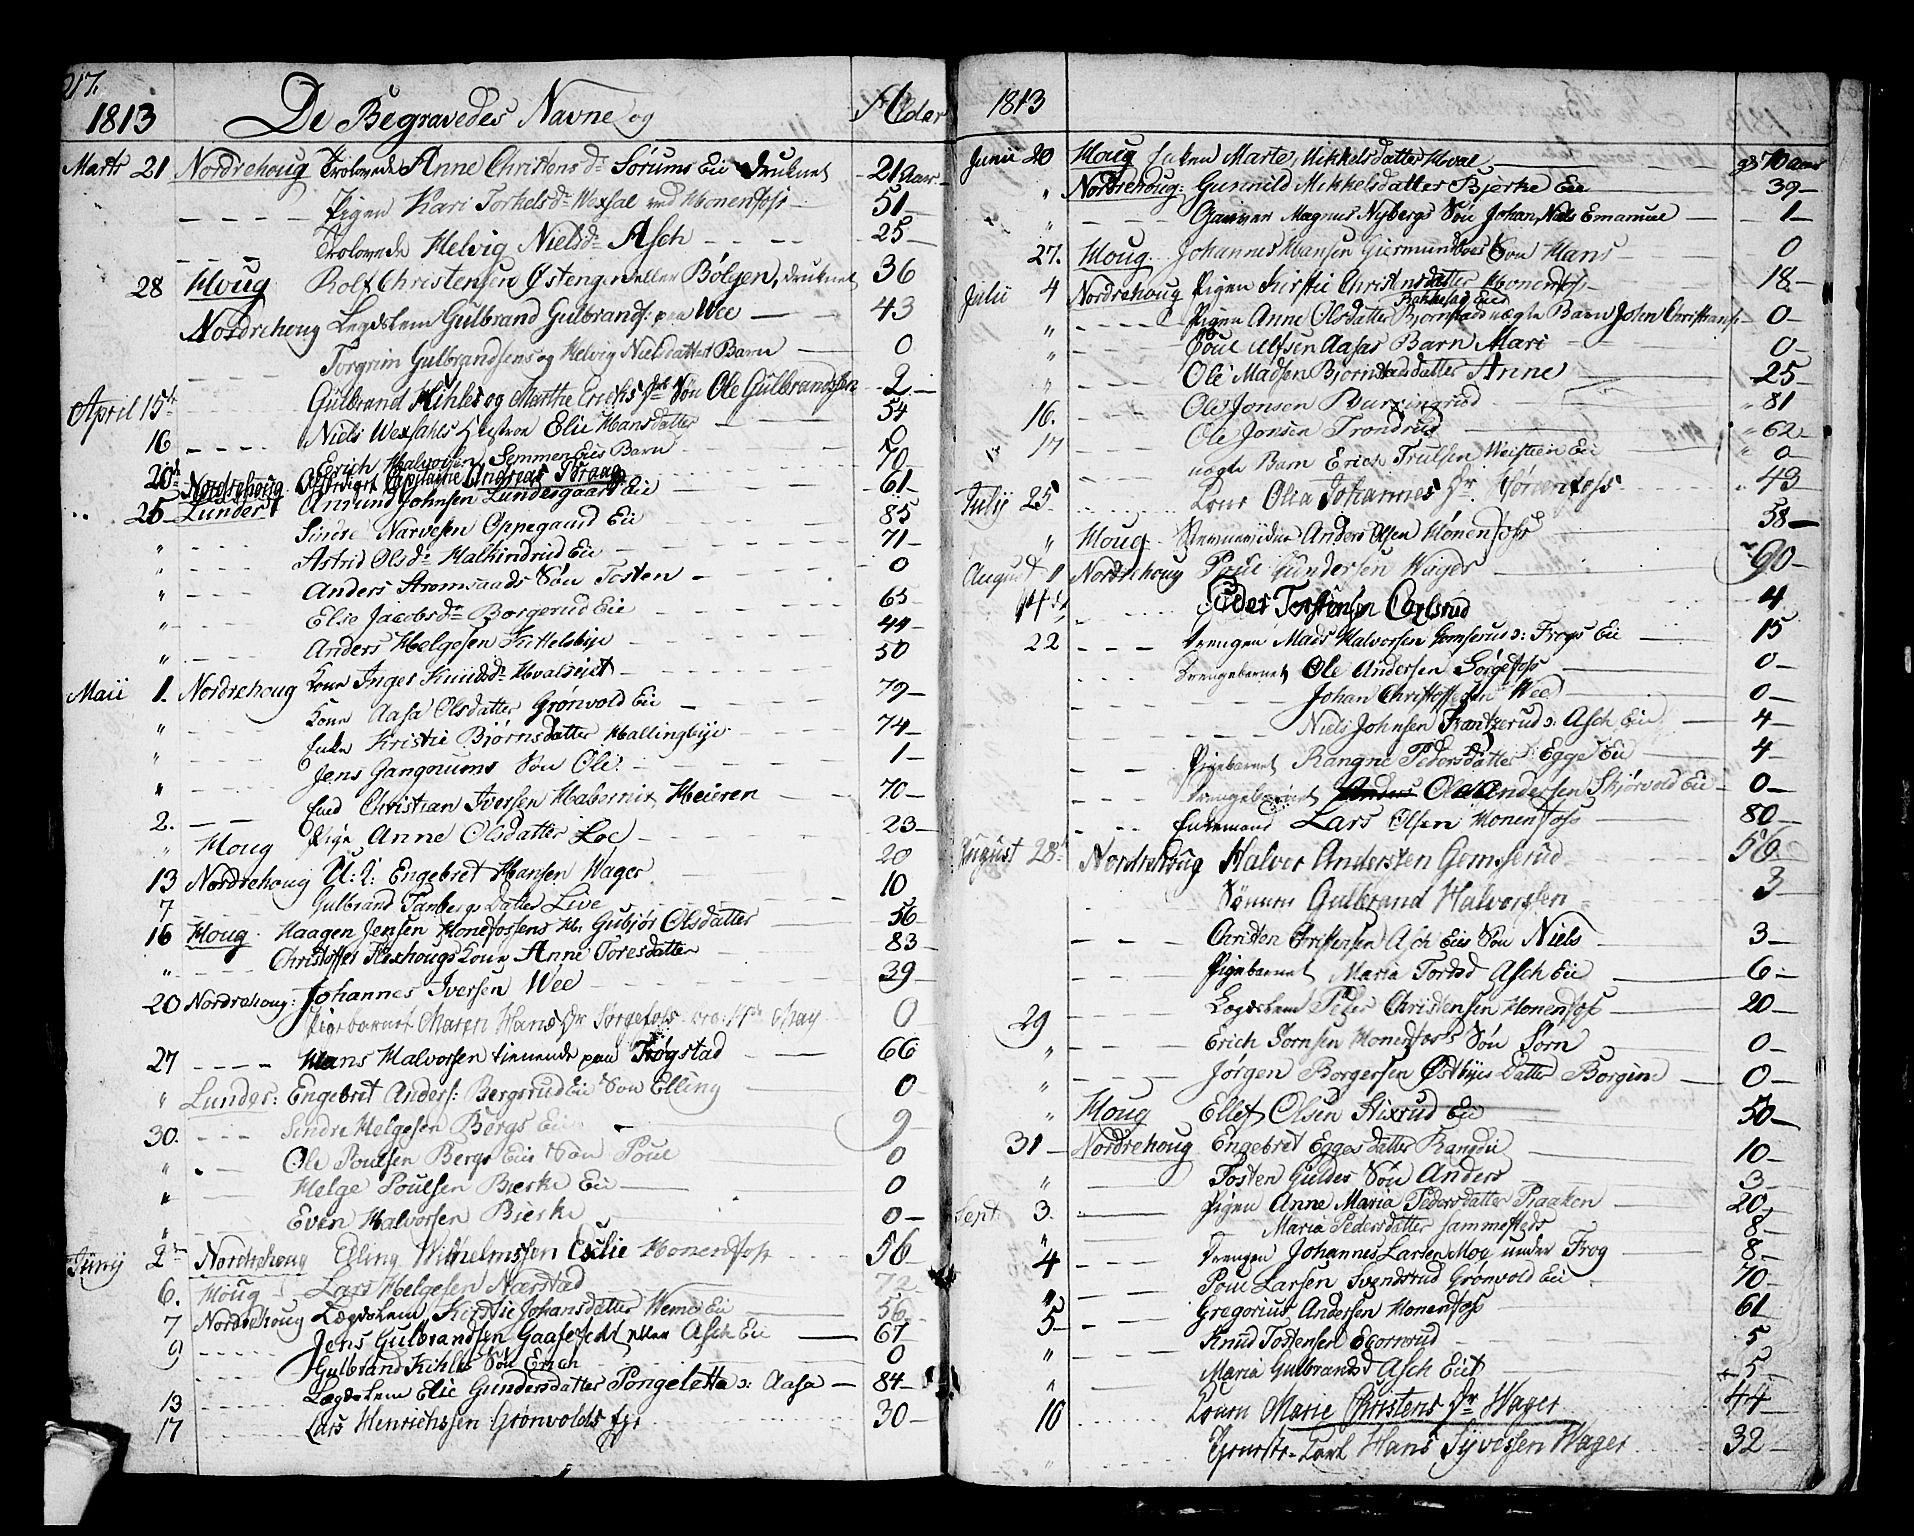 217.
1813 De Begravedes Navne og Alder
Marts 21 Nordrehoug Trolovede Anne Christens dr Sørums Eie druknet 21 aar
Pigen Kari Torkelsdr Wexsal ved Honenfoss 51
Trolovede Helvig Nielsdr Asch 25
28 Houg Rolf Christensen Østengen eller Bølgen, druknet 36
Nordrehoug Legdslem Gulbrand Gulbrands: paa Wee 43
Torgrim Gulbrandsens og Helvig Nielsdatter Barn 0
April 15de Gulbrand Kihles og Marthe Ericksdr Søn Ole Gulbrandsen 2
16 Niels Wexsahls Hustroe Elie Hansdatter 54
Erich Halvorsen Semmen Eies Barn 0
20de Nordrehoug Afskediget Capitaine Andreas Boraag 70
25 Lunder Amund Johnsen Lundesgaard Eie 61
" Narvesen Oppegaard Eie 85
" Astrid Olsdr Halkindrud Eie 71
" Anders Stromsaads Søn Tosten 0
" Elie Jacobsdr Borgerud Eie 65
" Anders Helgesen Kittelsbye 44
" Kone Inger Knudsdr Hvalseiet 50
Maii 1. Nordrehoug Kone Aasa Olsdatter Grønvold Eie 79
" Enke Kristie Bjørnsdatter Hallingbye 74
" Jens Gangnums Søn Ole 1
" Christian Iversen Habernix Heieren 70
2. Houg Pige Anne Olsdatter Loe 23
13 Nordrehoug U: O: Engebret Hansen Wager 20
7 Gulbrand Tanbergs Datter Live 10
16 Houg Haagen Jensen Honefossens K. Gubjør Olsdatter 56
" Christoffer Flaxhougs Kone Anne Toresdatter 83
20 Nordrehoug: Johannes Iversen Wee 39
Pigebarnet Maren Hans dr Sørgefoss 0
27 Hans Halvorsen tienende paa Trøgstad 66
" Lunder: Engebret Anders: Bergsrud Eie Søn Elling 0
30. Sindre Helgesen Bergs Eie 9
" Ole Poulsen Bergs Eies Søn Poul 0
" Helge Poulsen Bierke Eie 0
" Even Halvorsen Bierke 0
Junij 2de Nordrehoug Elling Wilhelmssen Honenfoss 56
6. Houg Lars Helgesen Nærstad 72
7 Nordrehoug Lægdslem Kirstie Johansdatter Weme Eie 56
9 Jens Gulbrandsen Gaasesedt eller Asch Eie 67
Gulbrand Kihles Søn Erich 0
13 Legdslem Elie Gundersdatter Pongeletta o: Aasa 84
17 Lars Henrichssen Grønvolds 30
1813
Junii 20 Houg Enken Marte Mikkelsdatter Hval 70 aar
" Nordrehoug: Gunnild Mikkelsdatter Bjerke Eie 39
" Garver Magnus Nybergs Søn Johan Niels Emanuel 1
27. Houg Johannes Hansen Giermundboes Søn Hans 0
Julii 4 Nordrehoug Pigen Kirstie Christensdatter Honenfoss 18
" Pigen Anne Olsdatter Bjørnstad uægte Barn John Christians: 0
" Poul Ulfsen Aasas Barn Mari 0
" Ole Madsen Bjørnstads datter Anne 25
16. Ole Jonsen 81
17 Ole Jonsen Trondrud 62
uægte Barn Erich Trulsen Weistien Eie 0
Julij 25 Kone Olia Johannes dr Hönenfoss 43
" Houg Anders Olsen Hönenfoss 58
August 1 Nordrehoug Poul Gundersen Wager 90
Peder Torstensen Carlsrud 4
22 Drengen Mads Halvorsen Gomserud o: Frogs Eie 15
Drengebarnet Ole Andersen Sörgefoss 0
Johan Christoffersen Wee 0
Niels Johnsen Frantzerud o: Asch Eie 4
Pigebarnet Rangne Pedersdatter Egge Eie 4
Drengebarnet Ole Andersen Skjørvold Eie 0
Enkemand Lars Olsen Honenfoss 80
August 28de Nordrehoug Halvor Andersten Gemserud 56
Sönnen Gulbrand Halvorssen 3
Christen Christensen Asch Eies Søn Niels 3
Pigebarnet Maria Tordsd Asch Eie 6
Legdslem Peder Christensen Honenfoss 20
29 Erich Jornsen Honenfos's Søn Jorn 0
" Jørgen Borgersen Østbyes Datter Borgine 0
" Houg Ellef Olsen Hixrud Eie 50
31 Nordrehoug Engebret Egges datter Randii 10
" Tosten Guldes Søn Anders 3
Sept. 3. Pigen Anne Maria Pedersdatter Braaken 20
" Maria Pedersdatter sammesteds 8
4 Drengen Johannes Larsen Moe under Frog 8
" Poul Larsen Svendsrud Grönvold Eie 70
5 Gregorius Andersen Honenfoss 61
" Knud Tostensen Egorerud 5
" Maria Gulbrandsd Asch Eiet 5
10 Konen Marie Christens dr Wager 44
" Hans Syvessen Wager 32